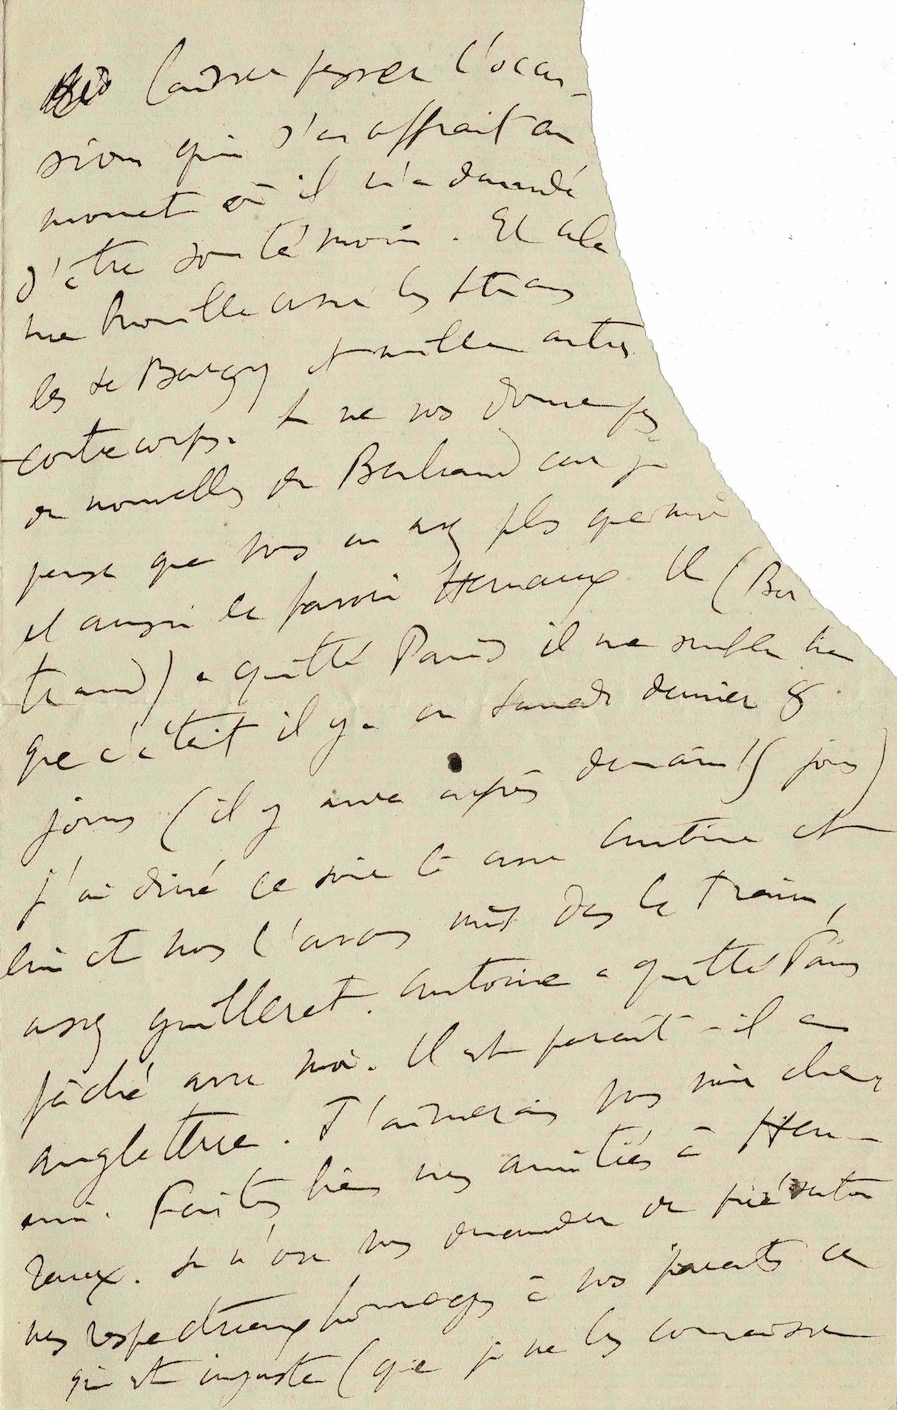 laisser passer l'occa-
sion qui s'en offrait au
moment où il m'a demandé
d'être son témoin. Et cela
me brouille avec les Straus
les Le Bargy et mille autres
contrecoups. Je ne vous donne pas
de nouvelles de Bertrand car je
pense que vous en avez plus que moi
et aussi le favori Henraux. Il (Ber
trand) a quitté Paris il me semble bien
que c'était il y a eu Samedi dernier 8
jours (il y aura après demain 15 jours)
j'ai dîné ce soir là avec Antoine et
lui et nous l'avons mis dans le train,
assez guilleret. Antoine a quitté Paris
fâché avec moi. Il est paraît-il en
angleterre. J'aimerais vous voir cher
ami. Faites bien mes amitiés à Hen-
raux. Je n'ose vous demander de présenter
mes respectueux hommages à vos parents ce
qui est injuste (que je ne les connaisse